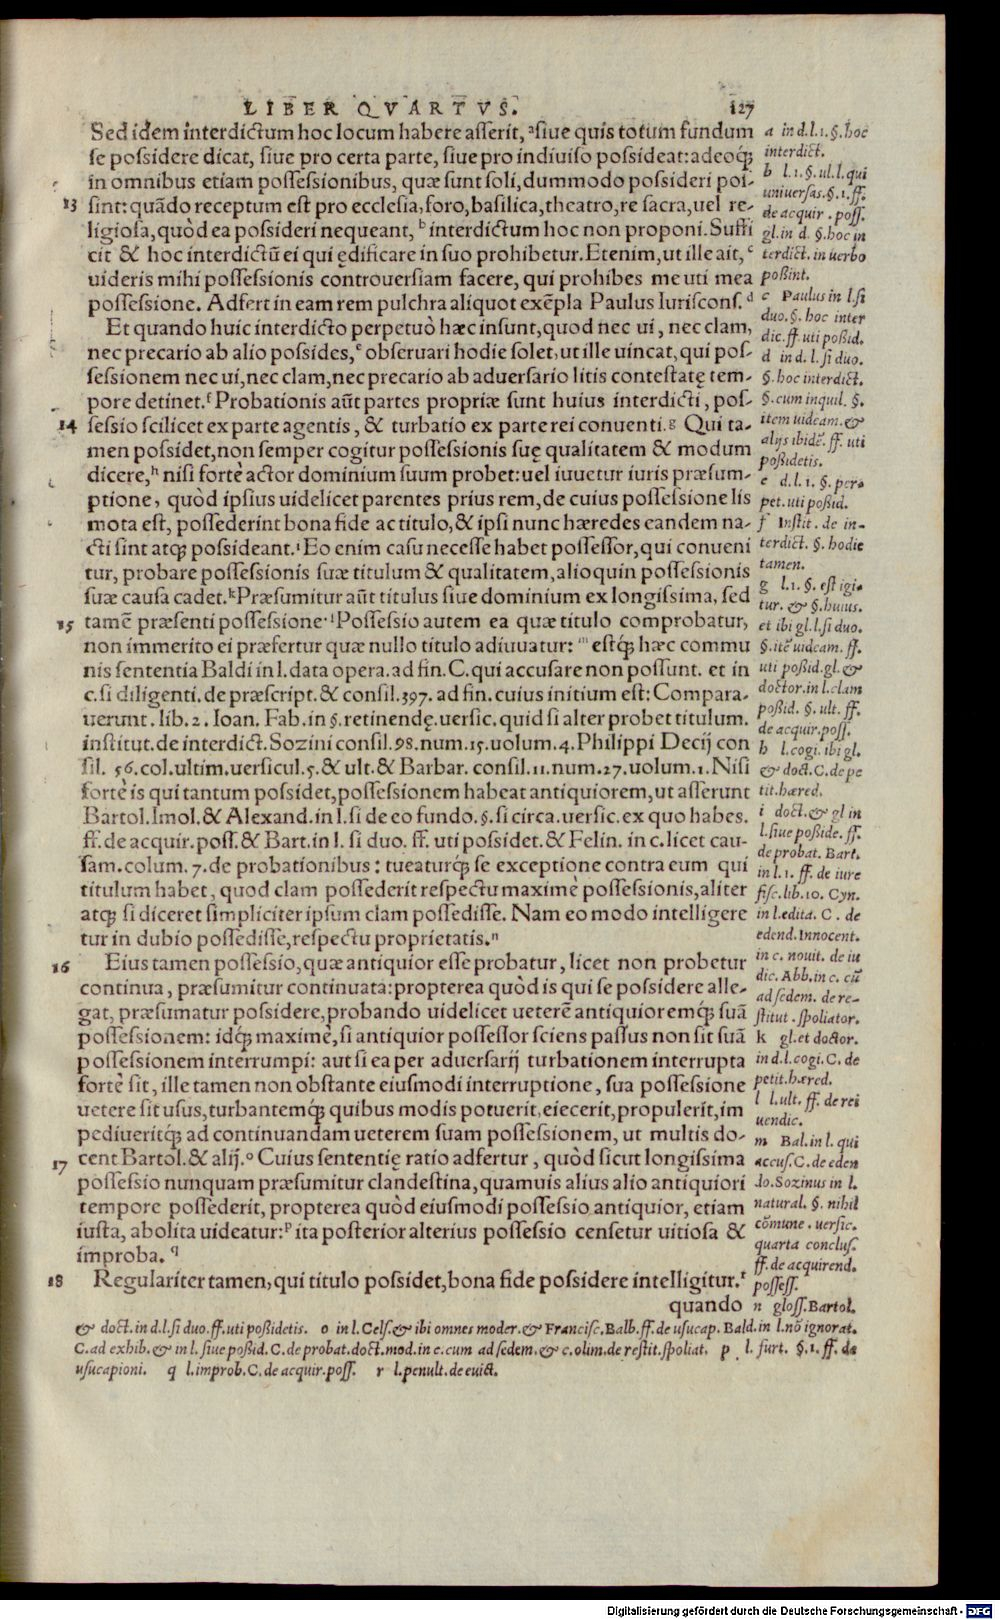 LIBER QVARTVS. 127
Sed idem interdictum hoc locum habere asserit, ᵃsiue quis totum fundum
se possidere dicat, siue pro certa parte, siue pro indiuiso possideat: adeoq́;
in omnibus etiam possessionibus, quæ sunt soli, dummodo possideri pos-
13 sint: quãdo receptum est pro ecclesia, foro, basilica, theatro, re sacra, uel re-
ligiosa, quòd ea possideri nequeant, ᵇ interdictum hoc non proponi. Suffi
cit & hoc interdictũ ei qui ędificare in suo prohibetur. Etenim, ut ille ait, ᶜ
uideris mihi possessionis controuersiam facere, qui prohibes me uti mea
possessione. Adfert in eam rem pulchra aliquot exẽpla Paulus Iuriscons. ᵈ
Et quando huic interdicto perpetuò hæc insunt, quod nec ui, nec clam,
nec precario ab alio possides, ᵉ obseruari hodie solet, ut ille uincat, qui pos-
sessionem nec ui, nec clam, nec precario ab aduersario litis contestatę tem-
pore detinet. ᶠ Probationis aũt partes propriæ sunt huius interdicti, pos-
14 sessio scilicet ex parte agentis, & turbatio ex parte rei conuenti. ᵍ Qui ta-
men possidet, non semper cogitur possessionis suę qualitatem & modum
dicere, ʰ nisi fortè actor dominium suum probet: uel iuuetur iuris præsum-
ptione, quòd ipsius uidelicet parentes prius rem, de cuius possessione lis
mota est, possederint bona fide ac titulo, & ipsi nunc hæredes eandem na-
cti sint atq; possideant. ⁱ Eo enim casu necesse habet possessor, qui conueni
tur, probare possessionis suæ titulum & qualitatem, alioquin possessionis
suæ causa cadet. ᵏ Præsumitur aũt titulus siue dominium ex longissima, sed
15 tamẽ præsenti possessione. ˡ Possessio autem ea quæ titulo comprobatur,
non immerito ei præfertur quæ nullo titulo adiuuatur: ᵐ estq́; hæc commu
nis sententia Baldi in l. data opera. ad fin. C. qui accusare non possunt. et in
c. si diligenti. de præscript. & consil. 397. ad fin. cuius initium est: Compara-
uerunt. lib. 2. Ioan. Fab. in §. retinendę. uersic. quid si alter probet titulum.
institut. de interdict. Sozini consil. 98. num. 15. uolum. 4. Philippi Decij con
sil. 56. col. ultim. uersicul. 5. & ult. & Barbar. consil. 11. num. 27. uolum. 1. Nisi
fortè is qui tantum possidet, possessionem habeat antiquiorem, ut asserunt
Bartol. Imol. & Alexand. in l. si de eo fundo. §. si circa. uersic. ex quo habes.
ff. de acquir. poss. & Bart. in l. si duo. ff. uti possidet. & Felin. in c. licet cau-
sam. colum. 7. de probationibus: tueaturq́; se exceptione contra eum qui
titulum habet, quod clam possederit respectu maximè possessionis, aliter
atq; si diceret simpliciter ipsum clam possedisse. Nam eo modo intelligere
tur in dubio possedisse, respectu proprietatis. ⁿ
16 Eius tamen possessio, quæ antiquior esse probatur, licet non probetur
continua, præsumitur continuata: propterea quòd is qui se possidere alle-
gat, præsumatur possidere, probando uidelicet ueterẽ antiquioremq́; suã
possessionem: idq́; maximè, si antiquior possessor sciens passus non sit suã
possessionem interrumpi: aut si ea per aduersarij turbationem interrupta
fortè sit, ille tamen non obstante eiusmodi interruptione, sua possessione
uetere sit usus, turbantemq́; quibus modis potuerit, eiecerit, propulerit, im
pediueritq́; ad continuandam ueterem suam possessionem, ut multis do-
17 cent Bartol. & alij. ᵒ Cuius sententię ratio adfertur, quòd sicut longissima
possessio nunquam præsumitur clandestina, quamuis alius alio antiquiori
tempore possederit, propterea quòd eiusmodi possessio antiquior, etiam
iusta, abolita uideatur: ᵖ ita posterior alterius possessio censetur uitiosa &
improba. q
18 Regulariter tamen, qui titulo possidet, bona fide possidere intelligitur. ʳ
quando
a in d. l. 1. §. hoc
interdict.
b l. 1. §. ul. l. qui
uniuersas. §. 1. ff.
de acquir. poss.
gl. in d. §. hoc in
terdict. in uerbo
possint.
c Paulus in l. si
duo. §. hoc inter
dic. ff. uti possid.
d in d. l. si duo.
§. hoc interdict.
§. cum inquil. §.
item uideam. &
alijs ibidẽ. ff. uti
possidetis.
e d. l. 1. §. per-
pet. uti possid.
f Instit. de in-
terdict. §. hodie
tamen.
g l. 1. §. est igi-
tur. & §. huius.
et ibi gl. l. si duo.
§. itẽ uideam. ff.
uti possid. gl. &
doctor. in l. clam
possid. §. ult. ff.
de acquir. poss.
h l. cogi. ibi gl.
& doct. C. de pe
tit. hæred.
i doct. & gl in
l. siue posside. ff.
de probat. Bart.
in l. 1. ff. de iure
fisc. lib. 10. Cyn.
in l. edita. C. de
edend. Innocent.
in c. nouit. de iu
dic. Abb. in c. cũ
ad sedem. de re-
stitut. spoliator.
k gl. et doctor.
in d. l. cogi. C. de
petit. hæred.
l l. ult. ff. de rei
uendic.
m Bal. in l. qui
accus. C. de eden
do. Sozinus in l.
natural. §. nihil
cõmune. uersic.
quarta conclus.
ff. de acquirend.
possess.
n gloss. Bartol.
& doct. in d. l. si duo. ff. uti possidetis. o in l. Cels. & ibi omnes moder. & Francisc. Balb. ff. de usucap. Bald. in l. nõ ignorat.
C. ad exhib. & in l. siue possid. C. de probat. doct. mod. in c. cum ad sedem. & c. olim. de restit. spoliat. p l. furt. §. 1. ff. de
usucapioni. q l. improb. C. de acquir. poss. r l. penult. de euict.
Digitalisierung gefördert durch die Deutsche Forschungsgemeinschaft - DFG